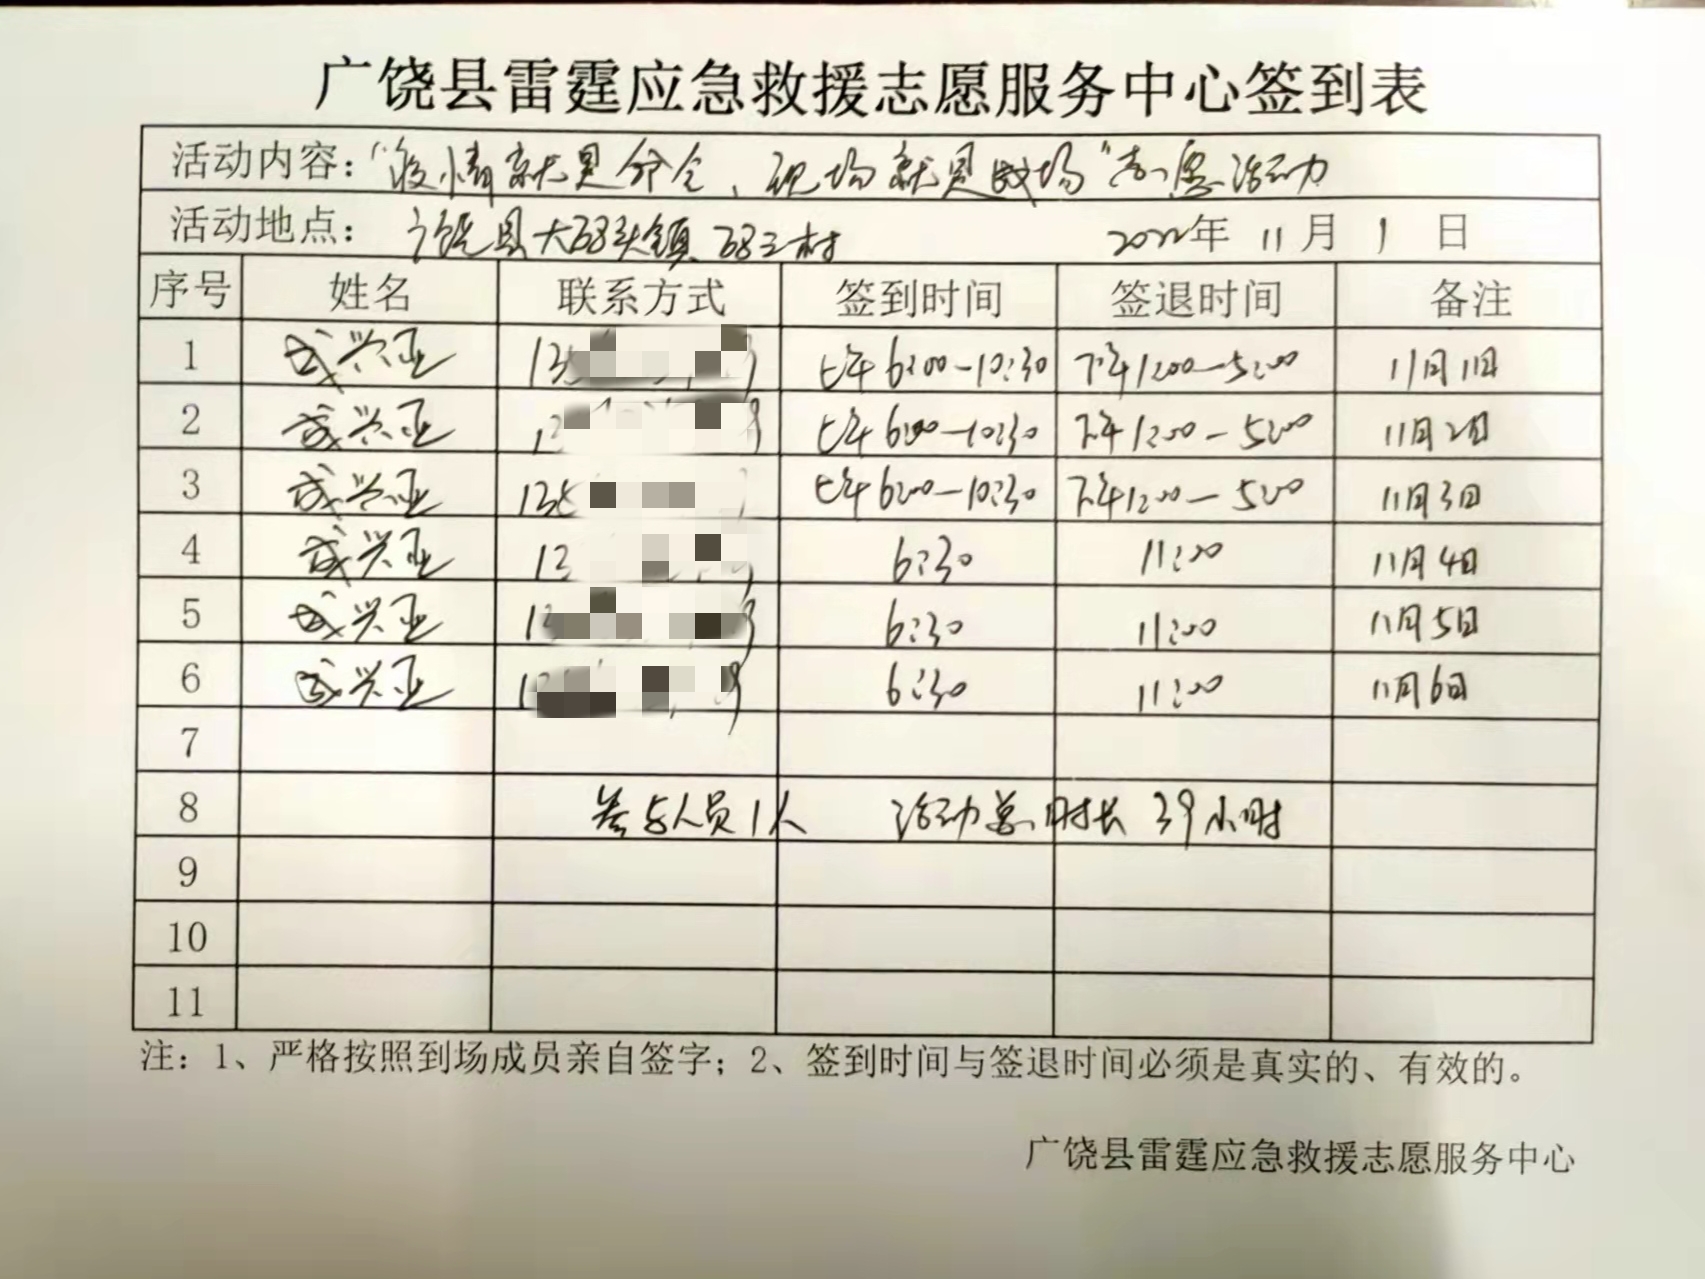 广饶县雷霆应急救援志愿服务中心签到表
活动内容：“疫情就是命令、现场就是战场”志愿活动
活动地点：广饶县大码头镇 码三村 2022年 11月 1日
序号 姓名 联系方式 签到时间 签退时间 备注
1 成兴亚 上午6:00-10:30 下午1:00-5:00 11月1日
2 成兴亚 上午6:00-10:30 下午1:00-5:00 11月2日
3 成兴亚 上午6:00-10:30 下午1:00-5:00 11月3日
4 成兴亚 6:30 11:00 11月4日
5 成兴亚 6:30 11:00 11月5日
6 成兴亚 6:30 11:00 11月6日
7
8 参与人员1人 活动总时长 39小时
9
10
11
注：1、严格按照到场成员亲自签字；2、签到时间与签退时间必须是真实的、有效的。
广饶县雷霆应急救援志愿服务中心